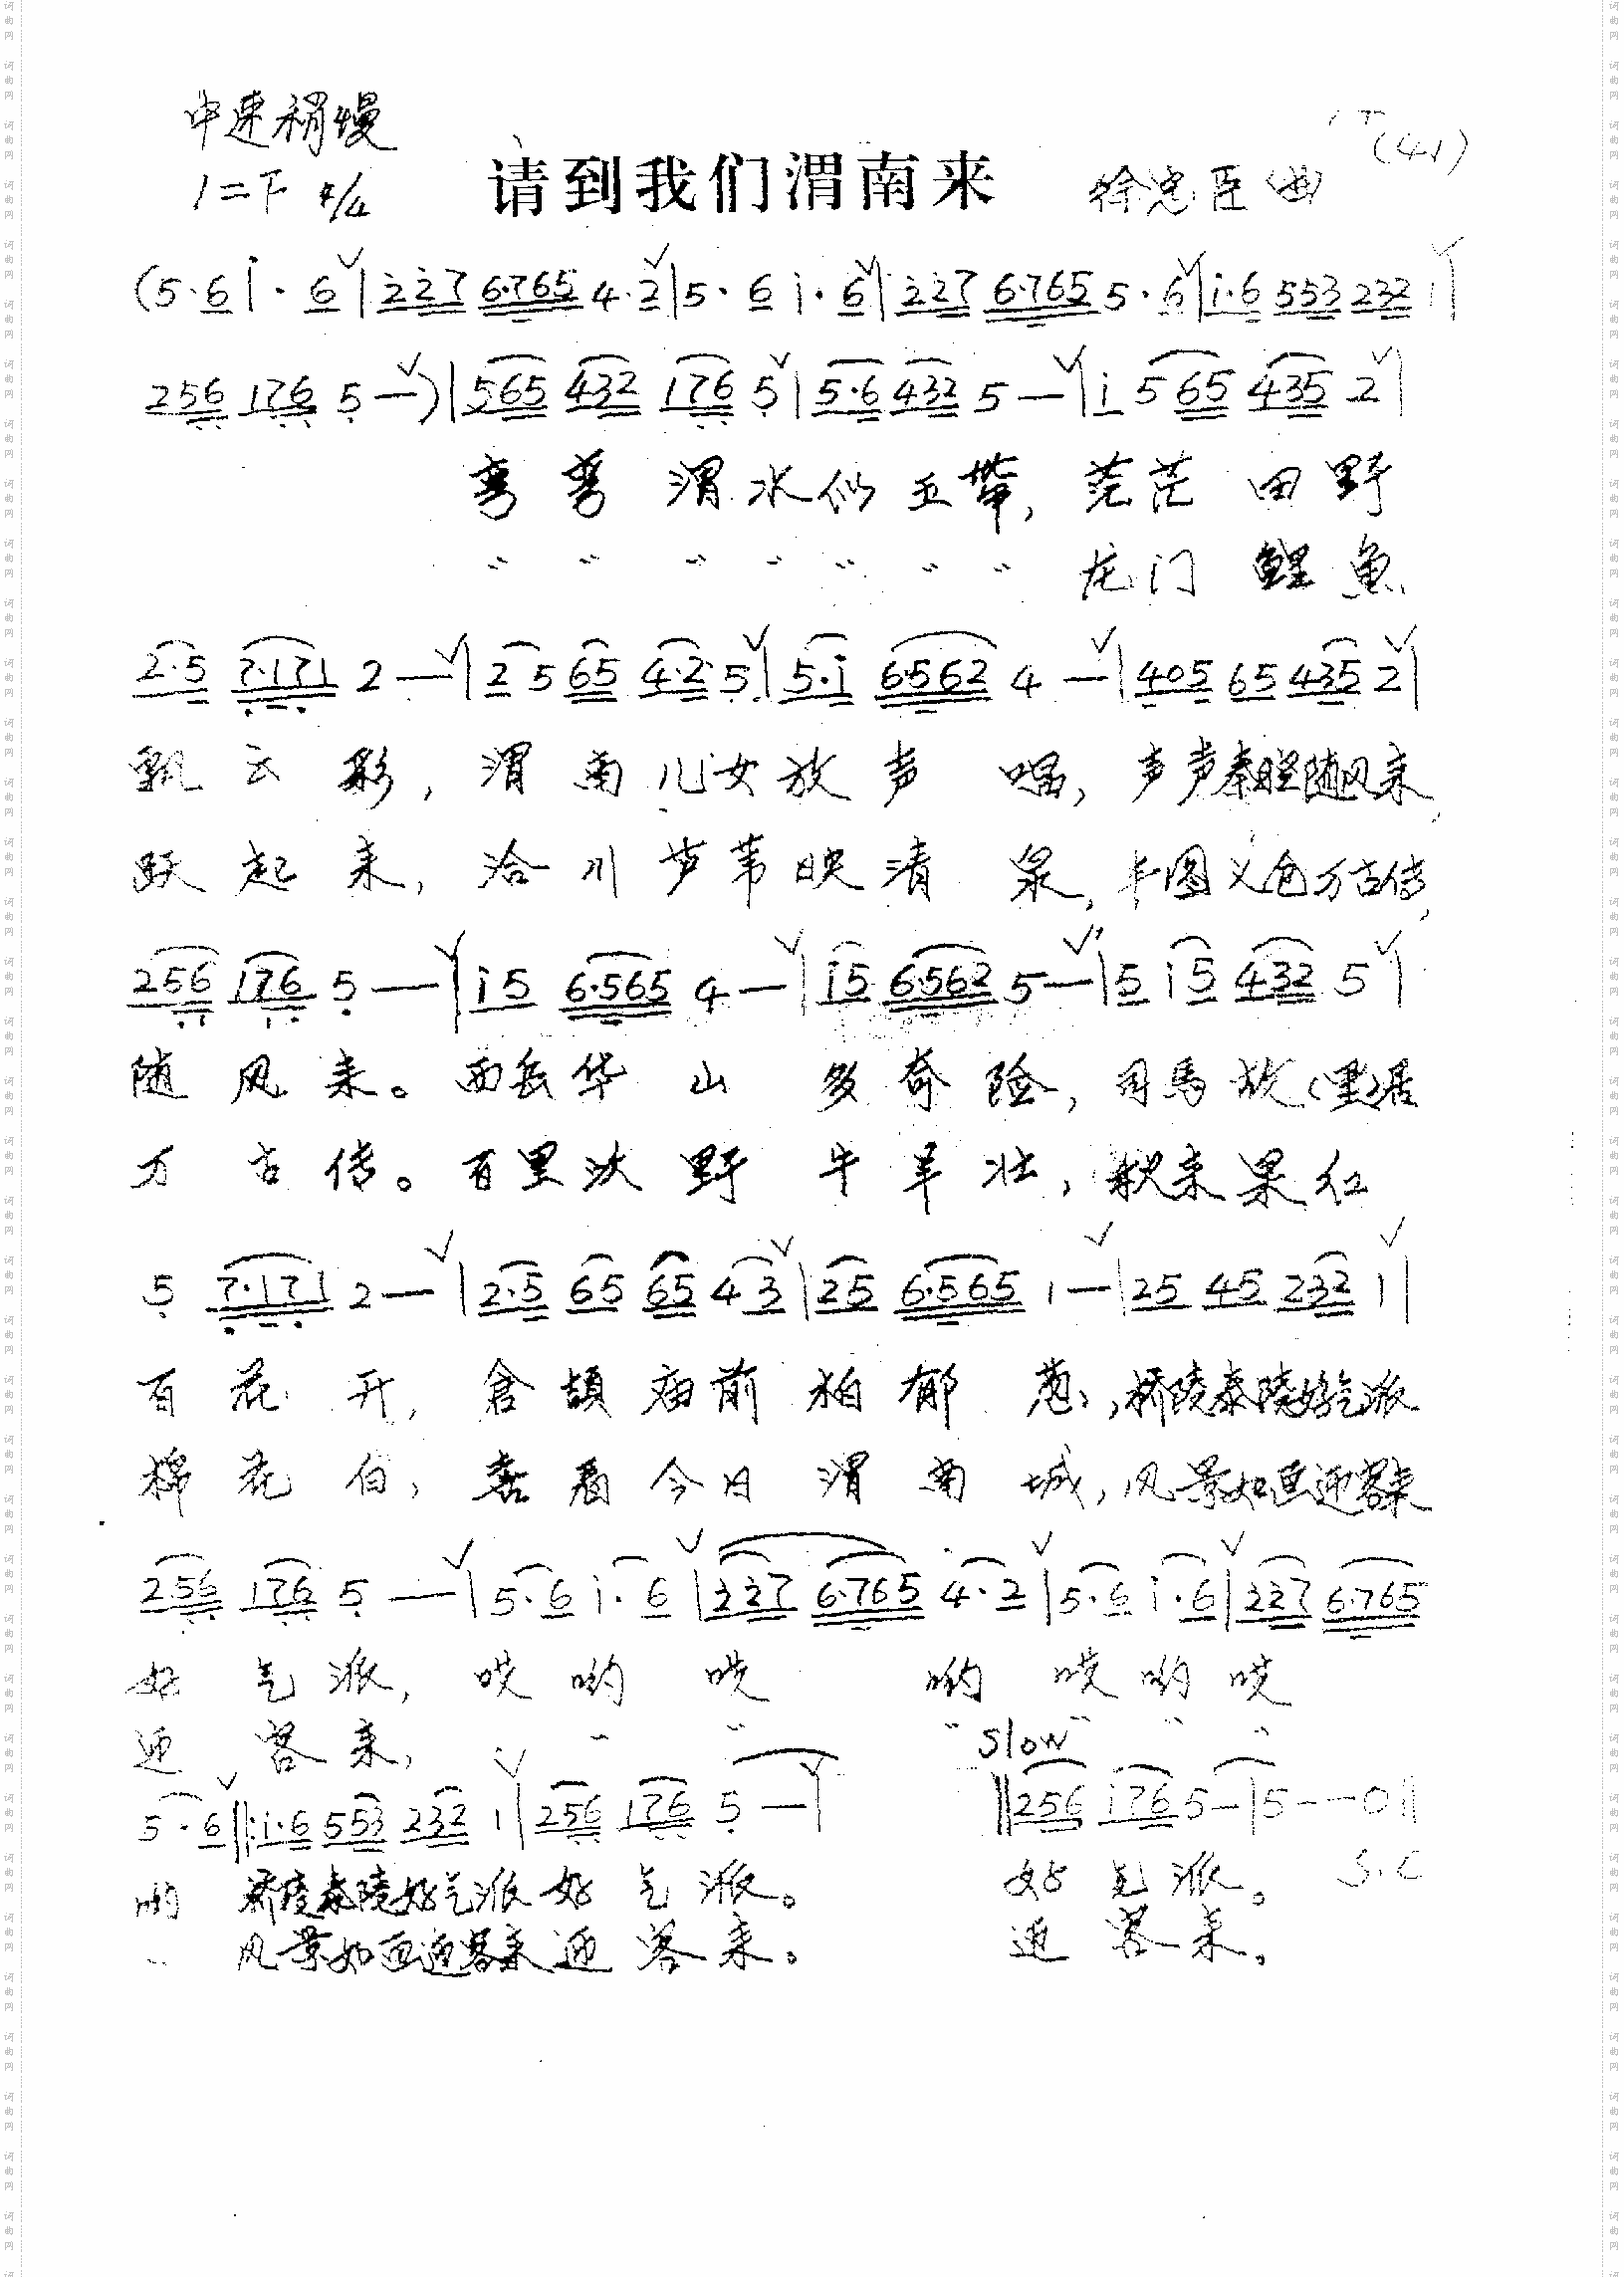 中速稍慢
(41)
1=F 4/4 请到我们渭南来 徐忠臣 曲
(5·6 i·6 | 227 6·765 4·2 | 5·6 i·6 | 227 6·765 5·6 | i·6 553 232 1 |
256 176 5 —) | 565 432 176 5 | 5·6 432 5 — | i 5 65 435 2 |
弯 弯 渭 水 似 玉 带, 茫茫 田 野
" " " " " " " 龙门 鲤 鱼
2·5 7·171 2 — | 2 5 65 4·2 5 | 5·i 6562 4 — | 405 65 435 2 |
飘 云 彩, 渭 南 儿 女 放 声 唱, 声声秦腔随风来,
跃 起 来, 洽 川 芦 苇 映 清 泉, 丰图义仓万古传,
256 176 5 — | i5 6·565 4 — | i5 6562 5 — | 5 i5 432 5 |
随 风 来。 西岳华 山 多 奇 险, 司马故(里)居
万 古 传。 百里沃 野 牛 羊 壮, 秋来果红
5 7·171 2 — | 2·5 65 65 43 | 25 6·565 1 — | 25 45 232 1 |
百 花 开, 仓 颉 庙 前 柏 郁 葱, 桥陵泰陵好气派
棉 花 白, 喜 看 今 日 渭 南 城, 风景如画迎客来
256 176 5 — | 5·6 i·6 | 227 6·765 4·2 | 5·6 i·6 | 227 6·765
好 气 派, 哎 哟 哎 哟 哎 哟 哎
迎 客 来, " " " " " " "
slow
5·6 ‖: i·6 553 232 1 | 256 176 5 — | ‖ 256 176 5 — | 5 — — 0 ‖
哟 桥陵泰陵好气派 好 气 派。 好 气 派。 S.C
" 风景如画迎客来 迎 客 来。 迎 客 来。